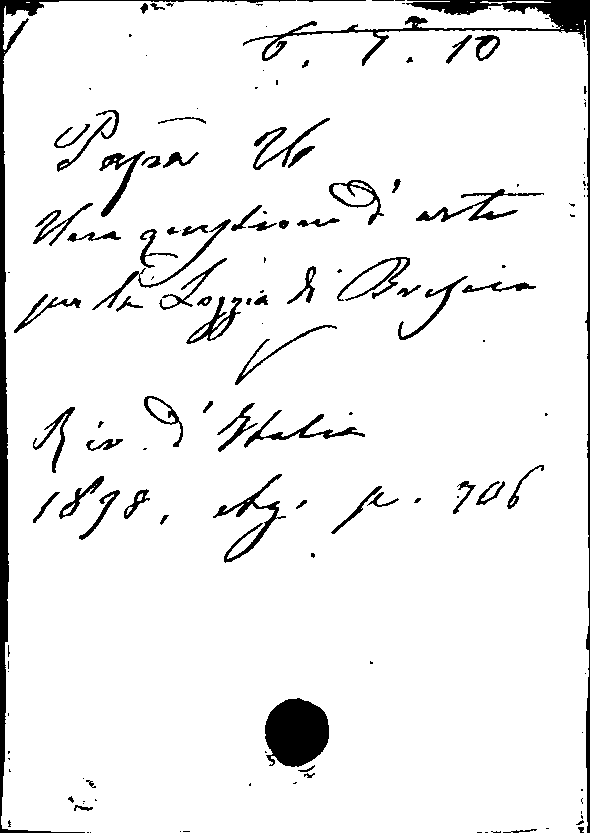 6. 7. 10
Papa U
Una questione d'arte
per la Loggia di Brescia
Riv. d'Italia
1898, p. 706